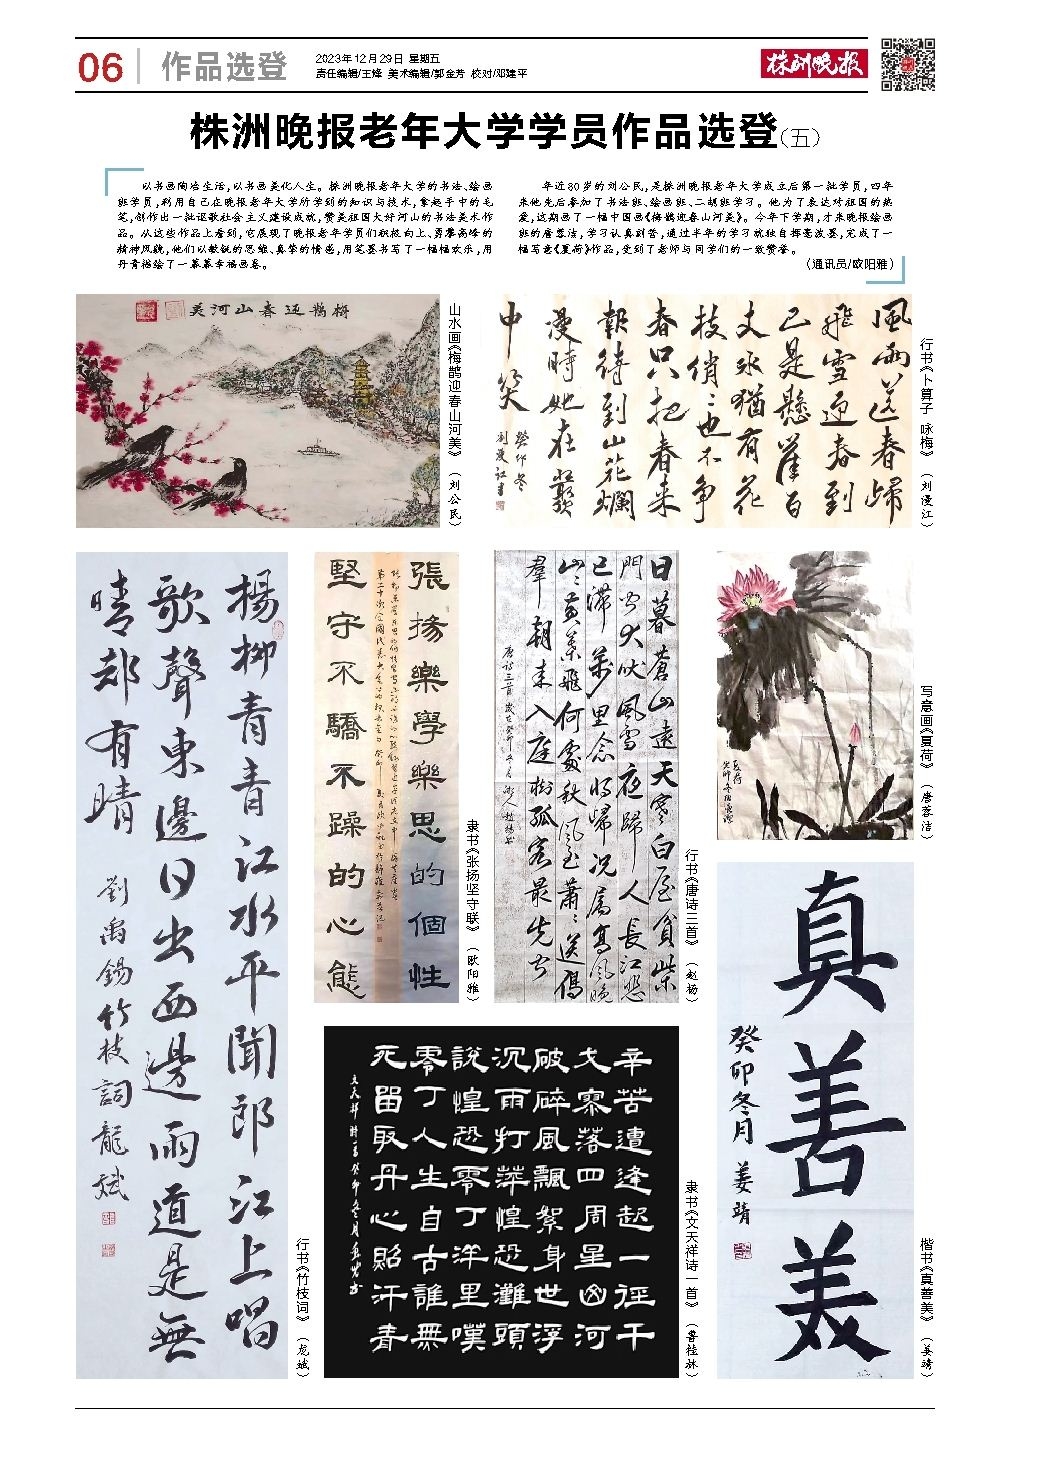 06
作品选登
2023年12月29日 星期五
责任编辑/王烽 美术编辑/郭金芳 校对/邓建平
株洲晚报
株洲晚报老年大学学员作品选登(五)
以书画陶冶生活,以书画美化人生。株洲晚报老年大学的书法、绘画
班学员,利用自己在晚报老年大学所学到的知识与技术,拿起手中的毛
笔,创作出一批讴歌社会主义建设成就,赞美祖国大好河山的书法美术作
品。从这些作品上看到,它展现了晚报老年学员们积极向上、勇攀高峰的
精神风貌,他们以敏锐的思维、真挚的情感,用笔墨书写了一幅幅欢乐,用
丹青描绘了一幕幕幸福画卷。
年近80岁的刘公民,是株洲晚报老年大学成立后第一批学员,四年
来他先后参加了书法班、绘画班、二胡班学习。他为了表达对祖国的热
爱,这期画了一幅中国画《梅鹊迎春山河美》。今年下学期,才来晚报绘画
班的唐蓉洁,学习认真刻苦,通过半年的学习就独自挥毫泼墨,完成了一
幅写意《夏荷》作品,受到了老师与同学们的一致赞誉。
(通讯员/欧阳雅)
梅鹊迎春山河美
山水画《梅鹊迎春山河美》 (刘公民)
風雨送春歸
飛雪迎春到
已是懸崖百
丈冰猶有花
枝俏〻也不争
春只把春来
報待到山花爛
漫時她在叢
中笑
癸卯冬
劉漫江書
行书《卜算子 咏梅》 (刘漫江)
楊柳青青江水平聞郎江上唱
歌聲東邊日出西邊雨道是無
晴却有晴
劉禹錫竹枝詞龍斌
行书《竹枝词》 (龙斌)
張揚樂學樂思的個性
堅守不驕不躁的心態
隶书《张扬坚守联》 (欧阳雅)
日暮蒼山遠天寒白屋貧柴
門聞犬吠風雪夜歸人長江悲
已滯萬里念将歸况屬高風晚
山〻黄葉飛何處秋風至蕭〻送雁
羣朝来入庭樹孤客最先聞
唐詩三首
行书《唐诗三首》 (赵杨)
夏荷
写意画《夏荷》 (唐蓉洁)
辛苦遭逢起一經干
戈寥落四周星山河
破碎風飄絮身世浮
沉雨打萍惶恐灘頭
說惶恐零丁洋里嘆
零丁人生自古誰無
死留取丹心照汗青
隶书《文天祥诗一首》 (鲁桂林)
真善美
癸卯冬月 姜靖
楷书《真善美》 (姜靖)